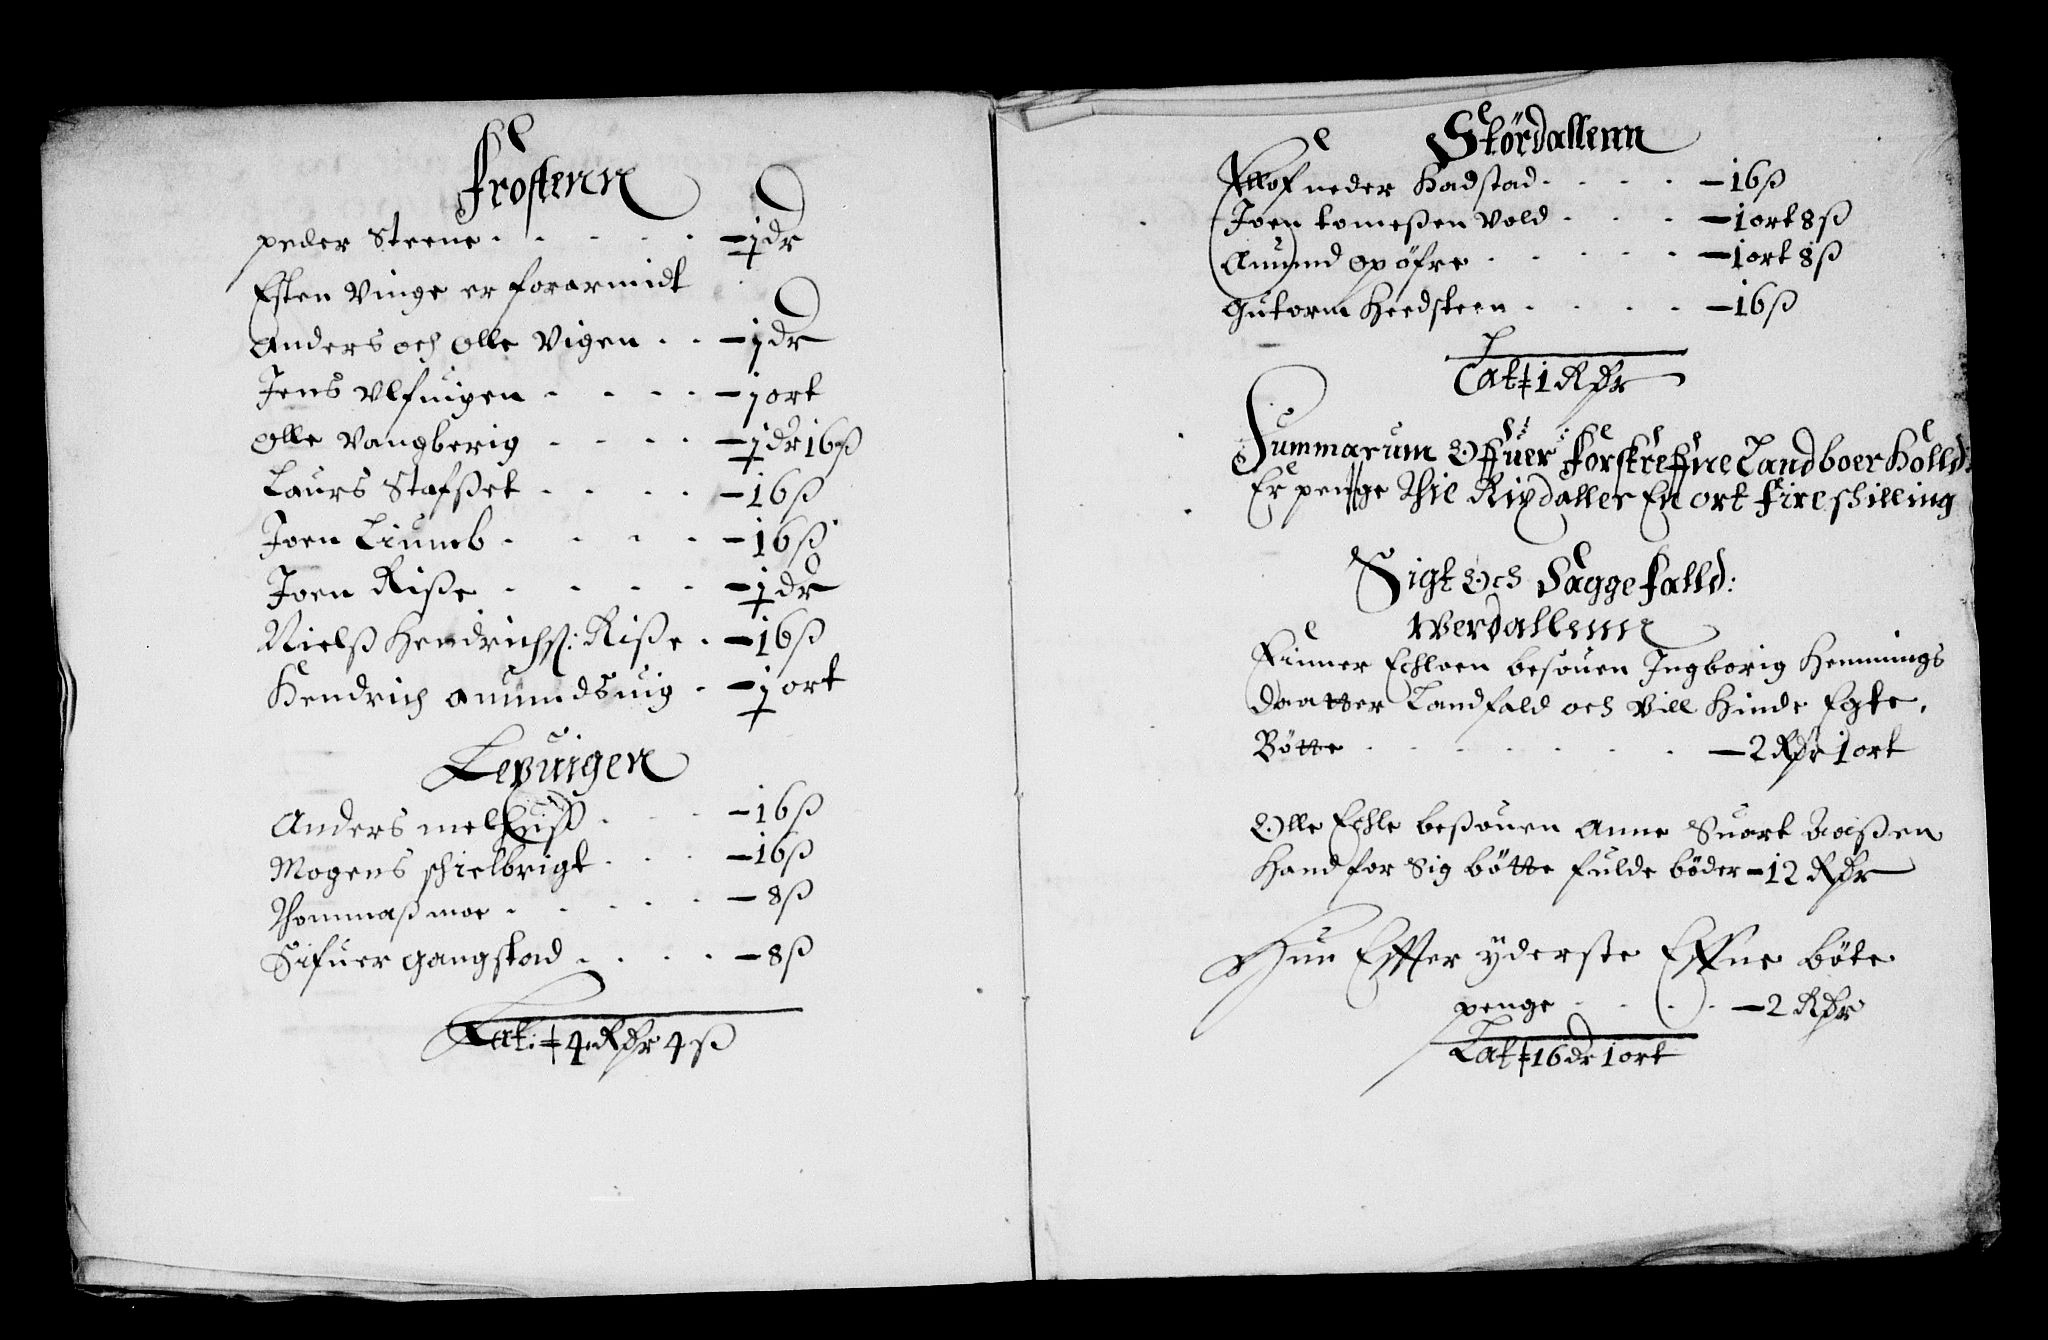 Frostenn
peder Steene. - - - - - ½ dr
Esten Vinge er forarmidt
Anders och Olle Vigen. . - ½ dr
Jens Ulfuigen - - - - - 1 ort
Olle Vangberig - - - - - ½ dr 16 ß
Laurs Stafßet - - - - 16 ß
Joen Liumb - - - - - 16 ß
Joen Riße - - - - - ½ dr
Nielß Hendrichß: Riße. - 16 ß
Hendrich Amundsuig - - 1 ort
Leuuigen
Anders melhuiß - - - 16 ß
Mogens schielbrigt - - - 16 ß
Thommaß moe - - - - - 8 ß
Sifuer Gangstad - - - - 8 ß
Lat: 4 Rdr 4 ß
Stördallenn
Ollof neder Hadstad - - - - 16 ß
Joen tomeßen Vold - - - - 1 ort 8 ß
Amund opöfre - - - - - 1 ort 8 ß
Gutorm Heedsteen - - - - 16 ß
Lat 1 Rdr
Summarum Offuer forskrefne Landboer Holld:
Er penge Thie Rixdaller En ort fire schilling
Sigt Och Sagge falld:
Werdallenn
Finner Echloen besouen Ingborig Hemmings
daatter Landfald och Vill Hinde Egte,
Bötte - - - - - - - 2 Rdr 1 ort
Olle Echle beßouen Anne Suort Aaßen
Hand for Sig bötte fulde böder - 12 Rdr
Hun Effter yderste Effne böte
penge - - - - 2 Rdr
Lat 16 dr 1 ort